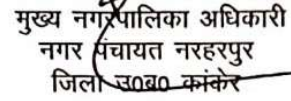 मुख्य नगरपालिका अधिकारी
नगर पंचायत नरहरपुर
जिला उ०ब० कांकेर